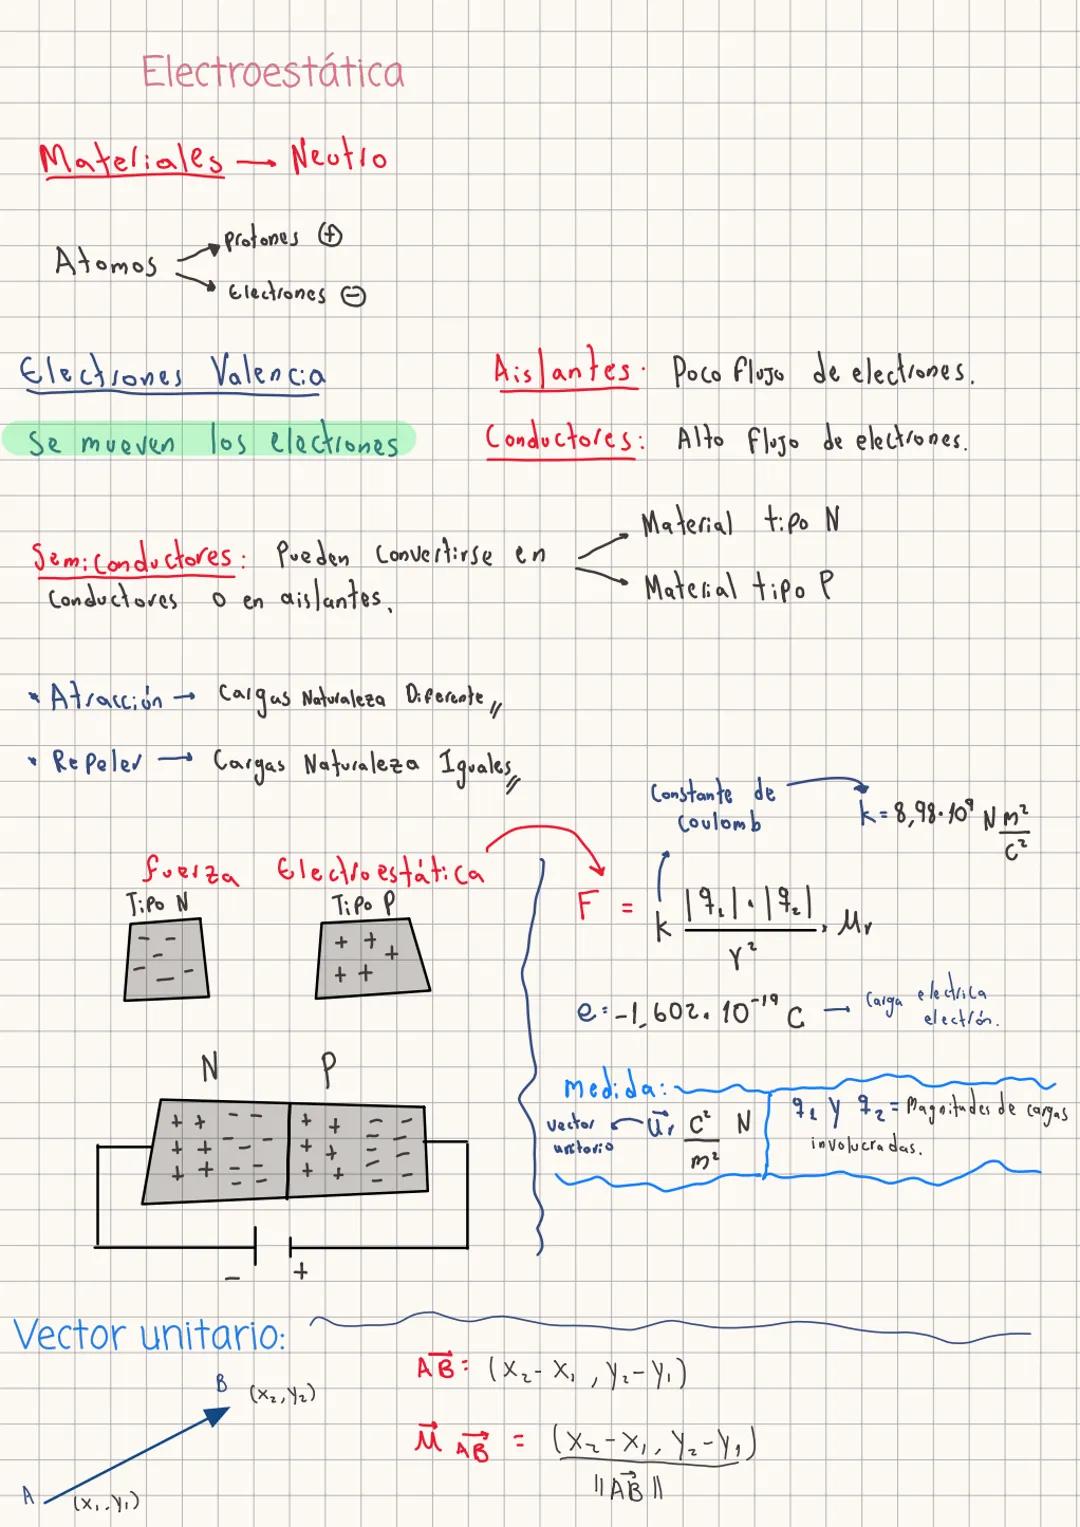 Electroestática
Materiales → Neutro
Atomos
protones ⊕
Electrones ⊖
Electrones Valencia
Se mueven los electrones
Aislantes: Poco flujo de electrones.
Conductores: Alto flujo de electrones.
Semiconductores: Pueden convertirse en
conductores o en aislantes.
Material tipo N
Material tipo P
* Atracción → Cargas Naturaleza Diferente //
* Repeler → Cargas Naturaleza Iguales //
Fuerza Electroestática
Tipo N
Tipo P
N P
- +
Constante de
Coulomb
k = 8,98·10⁹ N m²/C²
F = k |q₁|·|q₂| / r² · μr
e = -1,602·10⁻¹⁹ C → Carga electrica
electrón.
medida:
vector
unitario
u⃗r C²/m² N
q₁ y q₂ = Magnitudes de cargas
involucradas.
Vector unitario:
B (x₂, y₂)
A (x₁, y₁)
AB⃗: (x₂-x₁, y₂-y₁)
μ⃗ AB⃗ = (x₂-x₁, y₂-y₁) / ||AB⃗||